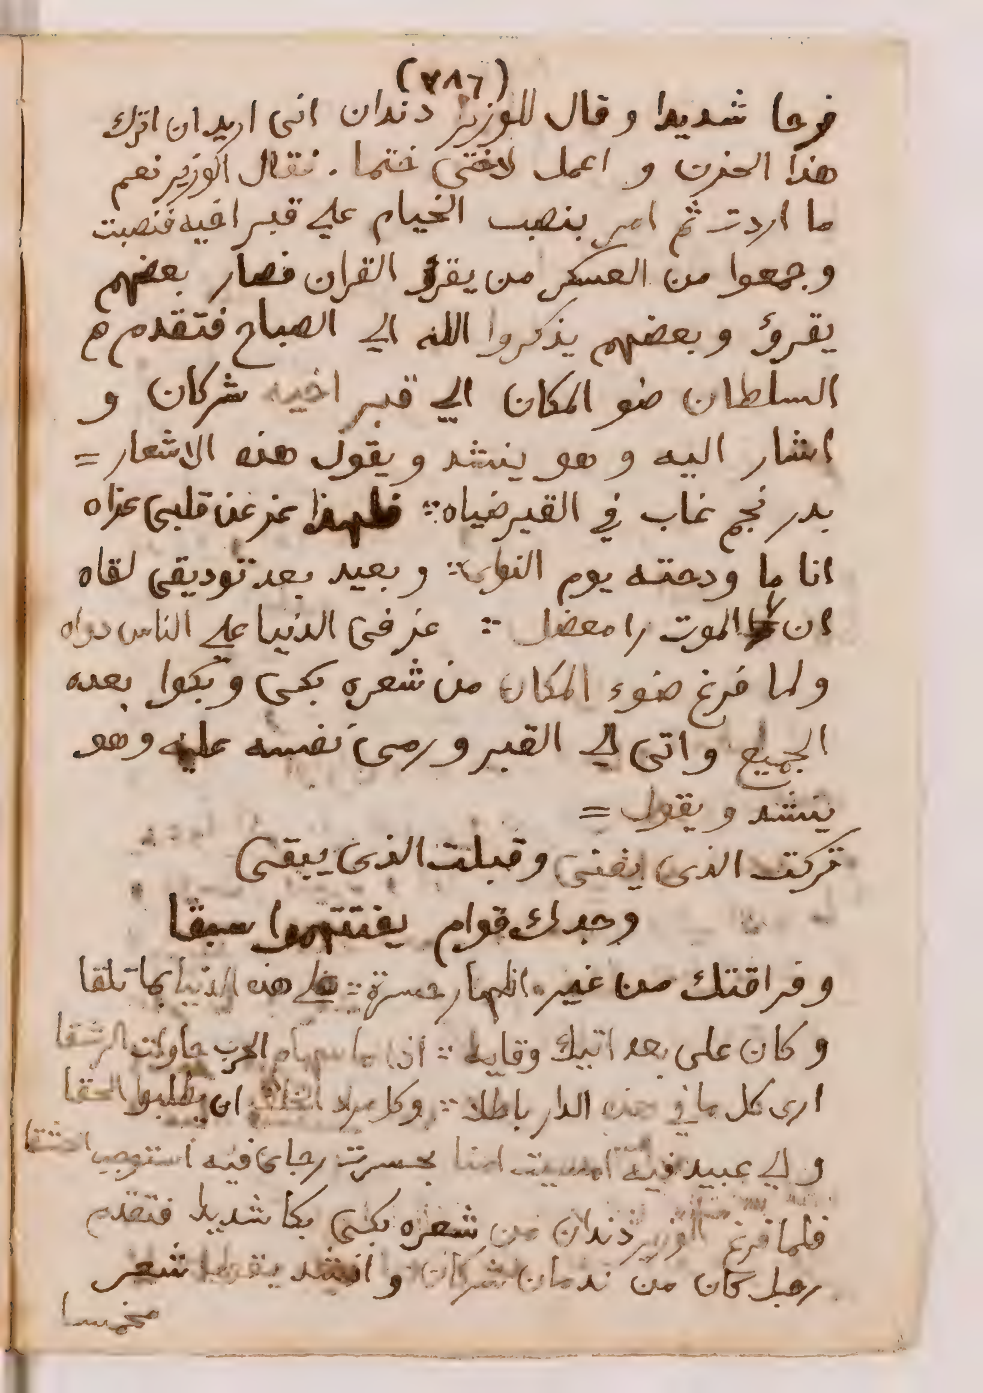 (٧٨٦)
فرحا شديدا وقال للوزير دندان انى اريد ان اترك
هذا الحزن و اعمل لاختى ختما . فقال الوزير نعم
ما اردت ثم امر بنصب الخيام علي قبر اخيه فنصبت
وجمعوا من العسكر من يقرؤ القران فصار بعضهم
يقرؤ وبعضهم يذكروا الله الي الصباح فتقدم
السلطان ضو المكان الي قبر اخيه شركان و
اشار اليه و هو ينشد و يقول هذه الاشعار =
بدر نجم غاب في القبر ضياه فلهذا عز عن قلبى عزاه
انا ما ودعته يوم النوى وبعيد بعد توديقى لقاه
ان الموت معضل عز فى الدنيا علي الناس دواه
ولما فرغ ضوء المكان من شعره بكى وبكوا بعده
الجميع و اتى الي القبر و رمى نفسه عليه وهو
ينشد و يقول =
تركت الذى يفنى وقبلت الذى يبقى
وجدك قوام سبقا
وفراقتك من غير اظهار حسرة علي هذه الدنيا بما تلقا
وكان على بعد اذا ما سهام الحرب حاولت الرشقا
ارى كل ما في هذه الدار باطلا ان يطلبوا الحقا
و لي
فلما فرغ الوزير دندان من شعره بكى بكا شديدا فتقدم
رجل كان من ندمان شركان و انشد يقول شعر
مخمسا